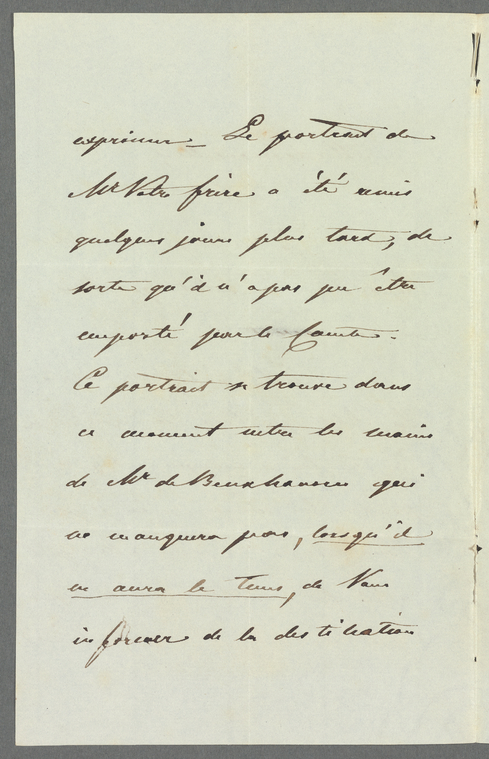 exprimer – Le portrait de
Mr Votre frère a été remis
quelques jours plus tard, de
sorte qu'il n'a pas pu être
emporté par le Comte.
Ce portrait se trouve dans
ce moment entre les mains
de Mr de
qui
ne manquera pas, lorsqu'il
en aura le tems, de Vous
informer de la destination